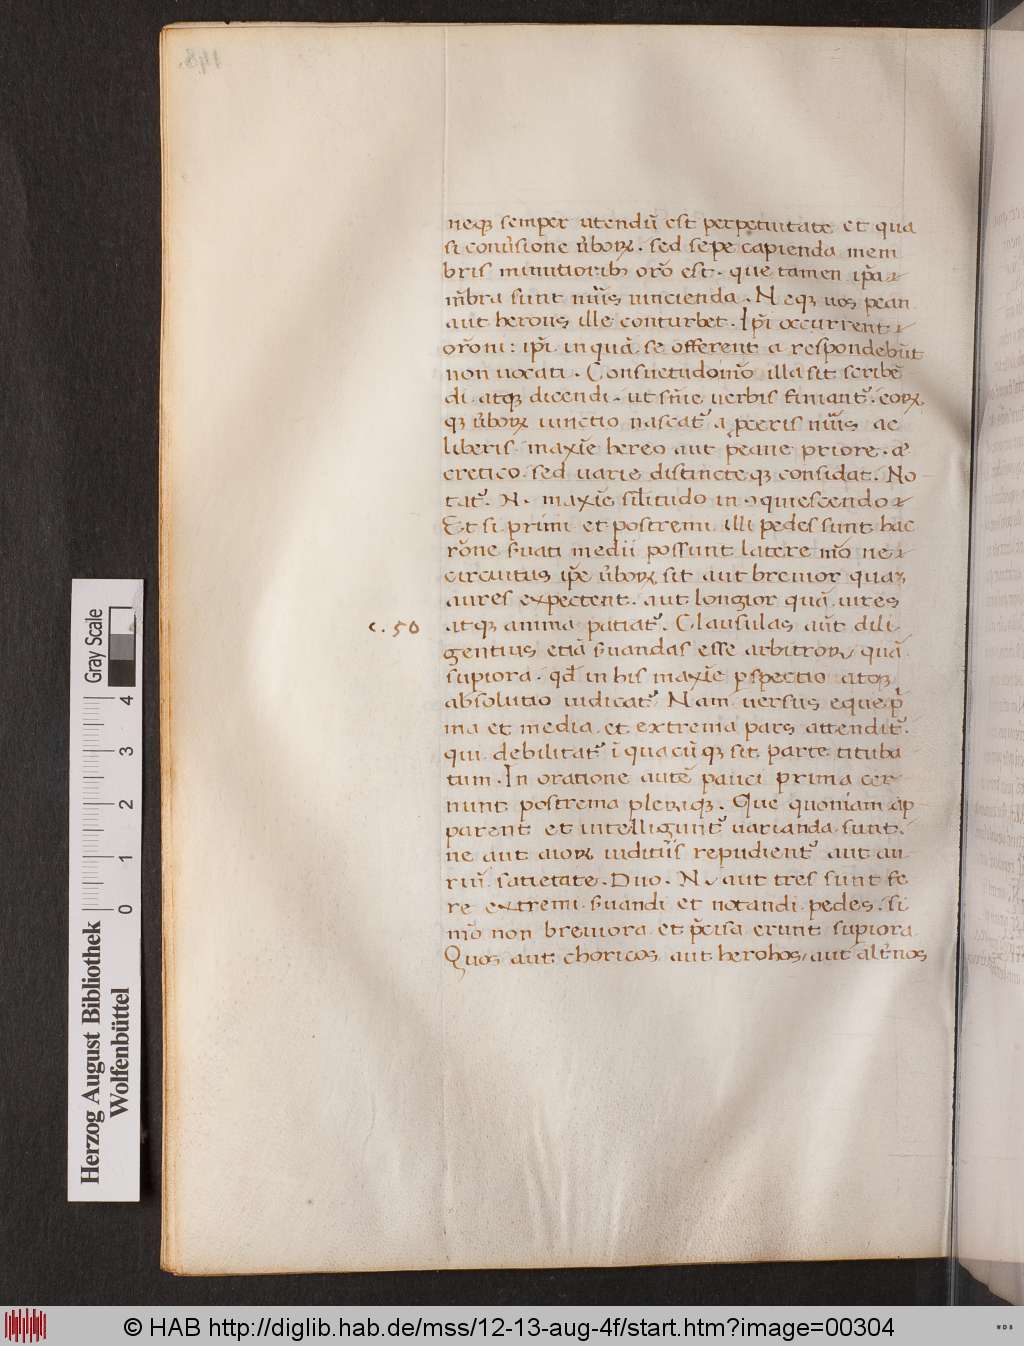 148.
neqꝫ semper utendū est perpetuitate et qua
si cōnūsione ūboꝝ. sed sepe capienda mem
bris minutioribꝫ orō est. que tamen ip̄a
mēbra sunt nūis uincienda. Neqꝫ uos pean
aut herous ille conturbet. Ip̄i occurrent
orōni: ip̄i inquā se offerent a respondebūt
non uocati. Consuetudo mō illa sit scribē
di atqꝫ dicendi. ut sn̄ie uerbis finiant᷑. eoꝝ
qꝫ ūboꝝ iunctio nascat᷑ a ꝓceris nūis ac
liberis maxīe hereo aut peane priore. a᷑
cretico. sed uarie distincteqꝫ considat. No
tat᷑. N. maxīe silitudo in ꝯquiescendo
Et si primi et postremi illi pedes sunt hac
rōne ẜuati medii possunt latere mō ne
circuitus ip̄e ūboꝝ sit aut breuior quaꝫ
aures expectent. aut longior quā uires
c. 50
atqꝫ anima patiat᷑. Clausulas aūt dili
gentius etiā ẜuandas esse arbitroꝝ quā
supiora. qđ in his maxīe ꝑspectio atqꝫ
absolutio iudicat᷑ Nam uersus eque p̄
ma et media et extrema pars attendit᷑.
qui debilitat᷑ ī quacūqꝫ sit parte tituba
tum. In oratione autē pauci prima cer
nunt postrema pleriqꝫ. Que quoniam ap
parent et intelligunt᷑ uarianda sunt.
ne aut aioꝝ iuditiis repudient᷑ aut au
riū satietate. Duo. N. aut tres sunt fe
re extremi ẜuandi et notandi pedes. si
mō non breuiora et p̄cisa erunt supiora
Quos aut choricos aut herohos aut alt᷑nos
Gray Scale
0 1 2 3 4
Herzog August Bibliothek
Wolfenbüttel
© HAB http://diglib.hab.de/mss/12-13-aug-4f/start.htm?image=00304